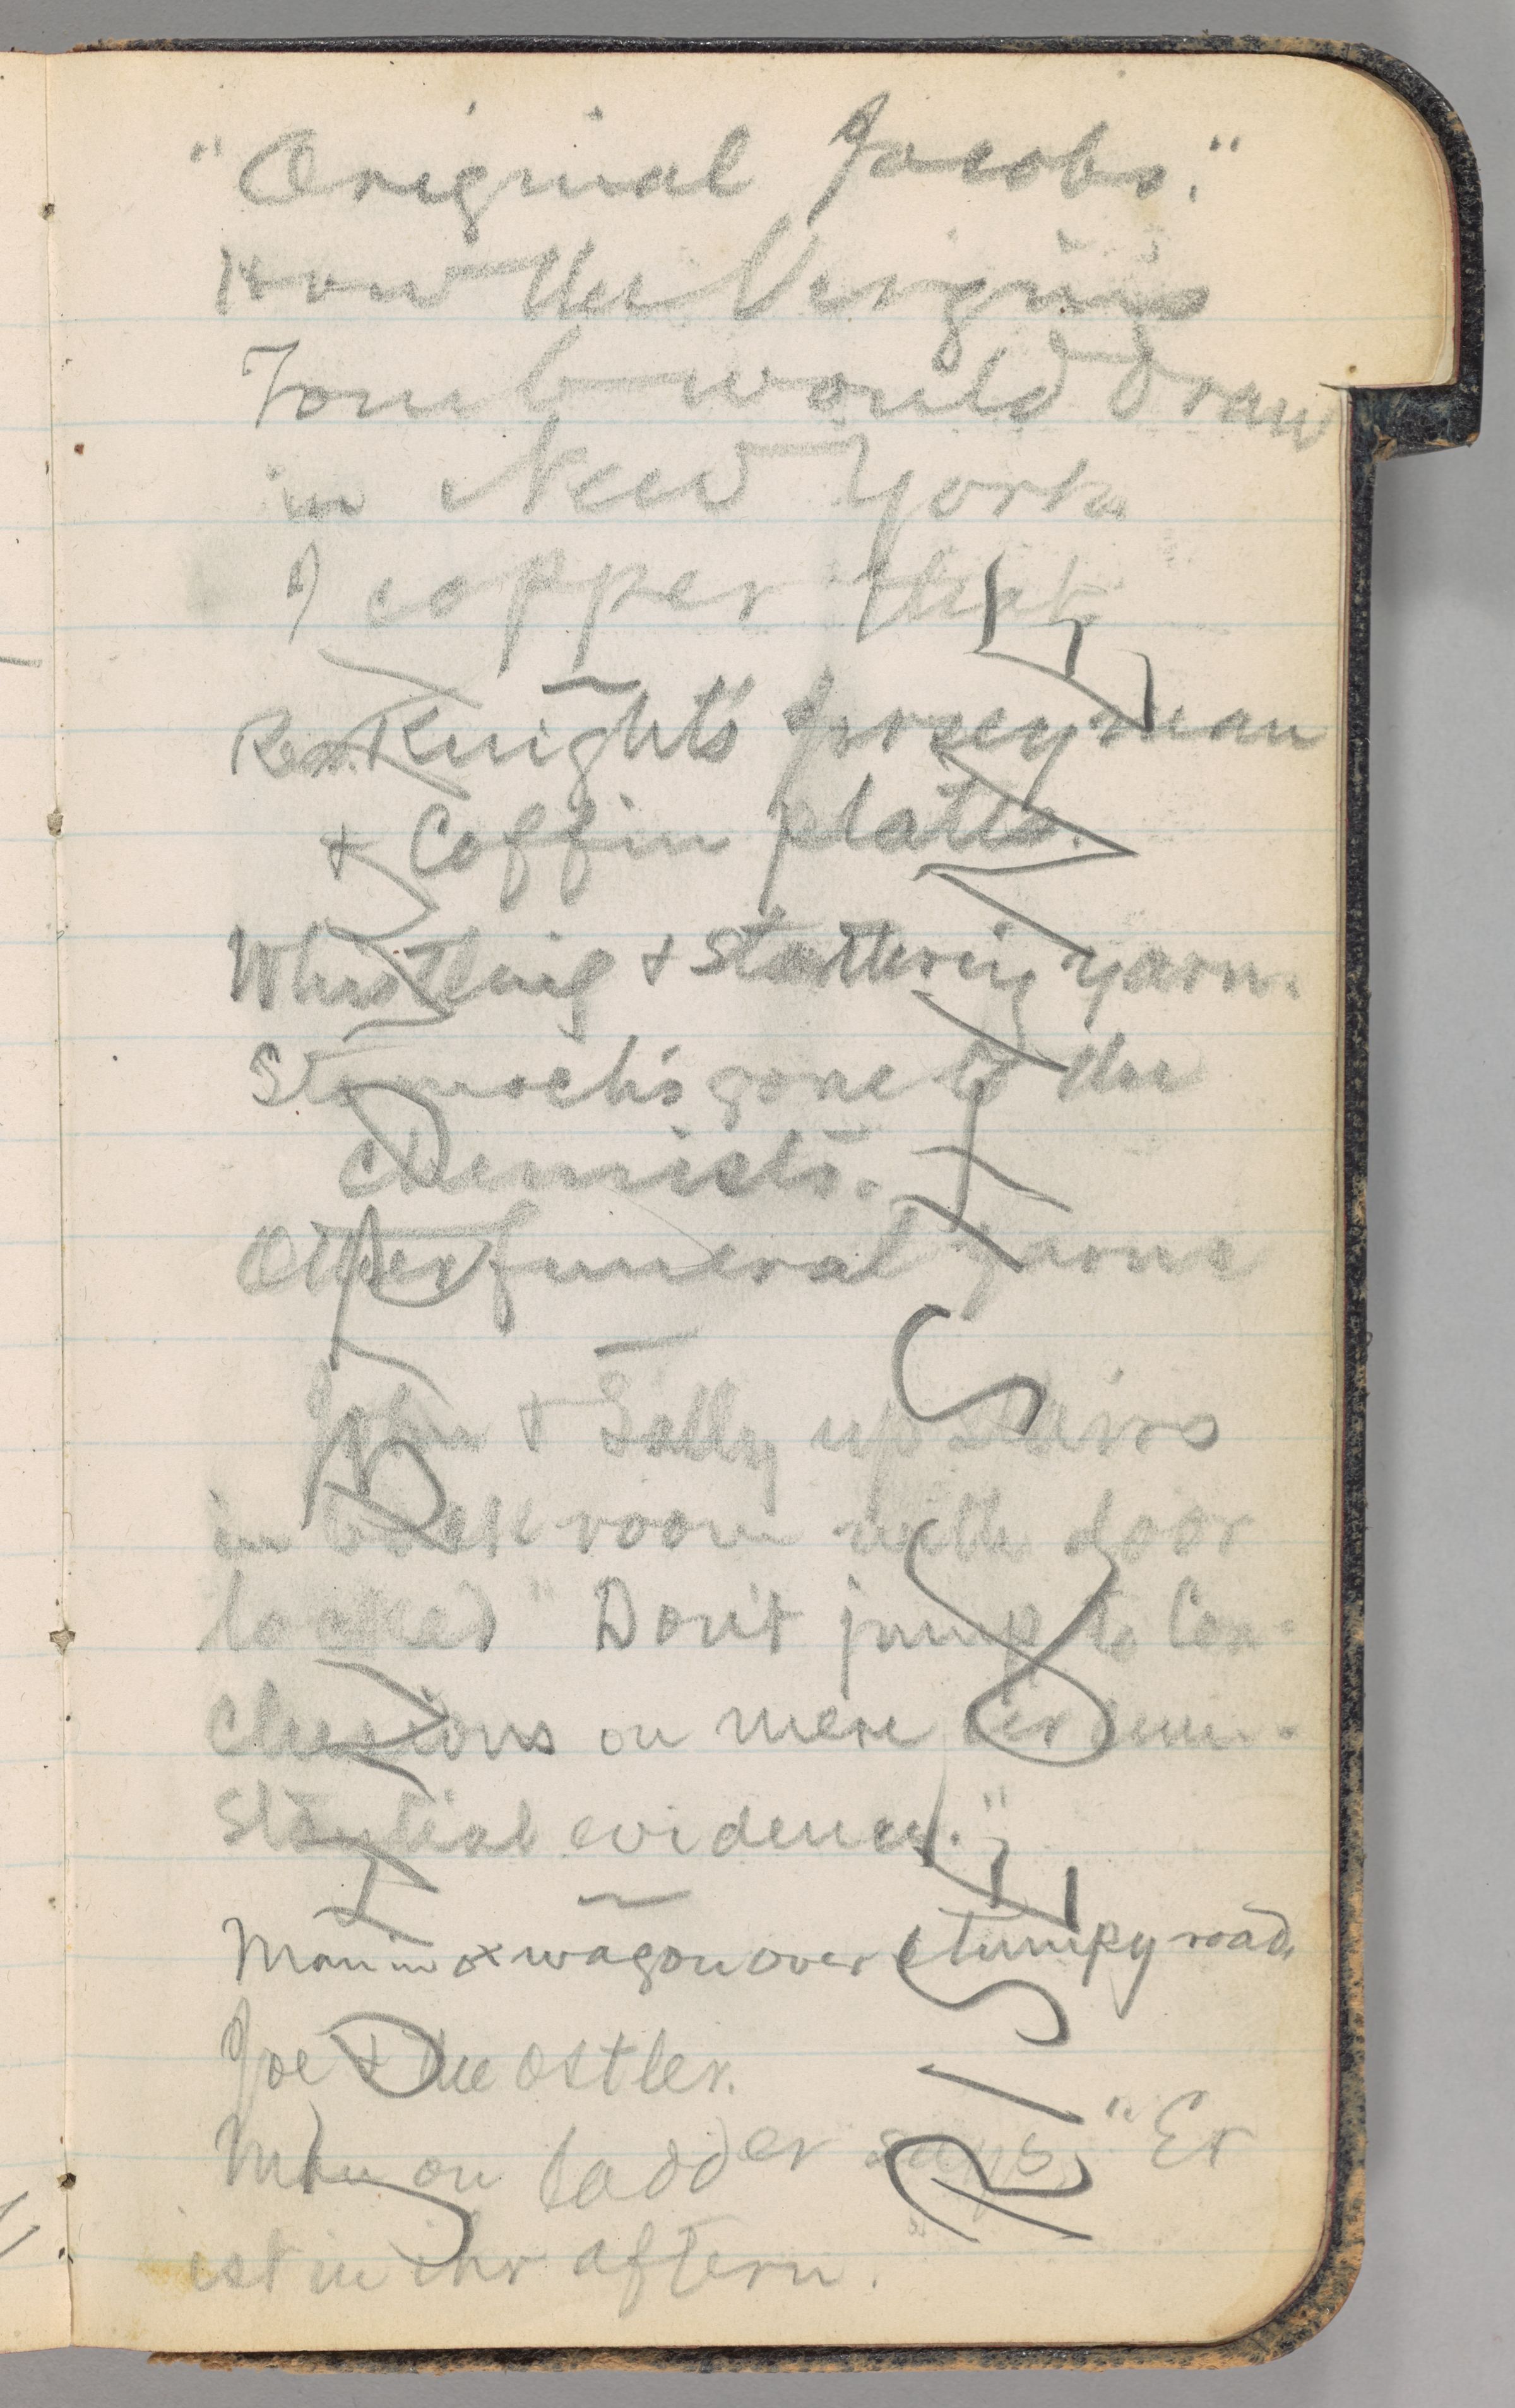 "Original Jacobs."
How the Virgin's
Tomb would draw
in New York.
I copper that.
Rev. Knight's Jerseyman
& Coffin plates.
Whistling & Stuttering yarn.
Stomach's gone to the
chemist's.
Other funeral yarns
John & Sally upstairs
in back room with door
locked "Don't jump to Con-
clusions on mere circum-
stantial evidence."
Man in ox wagon over stumpy road.
Joe & the ostler.
Man on ladder says, "Er
ist in ihr aftern."